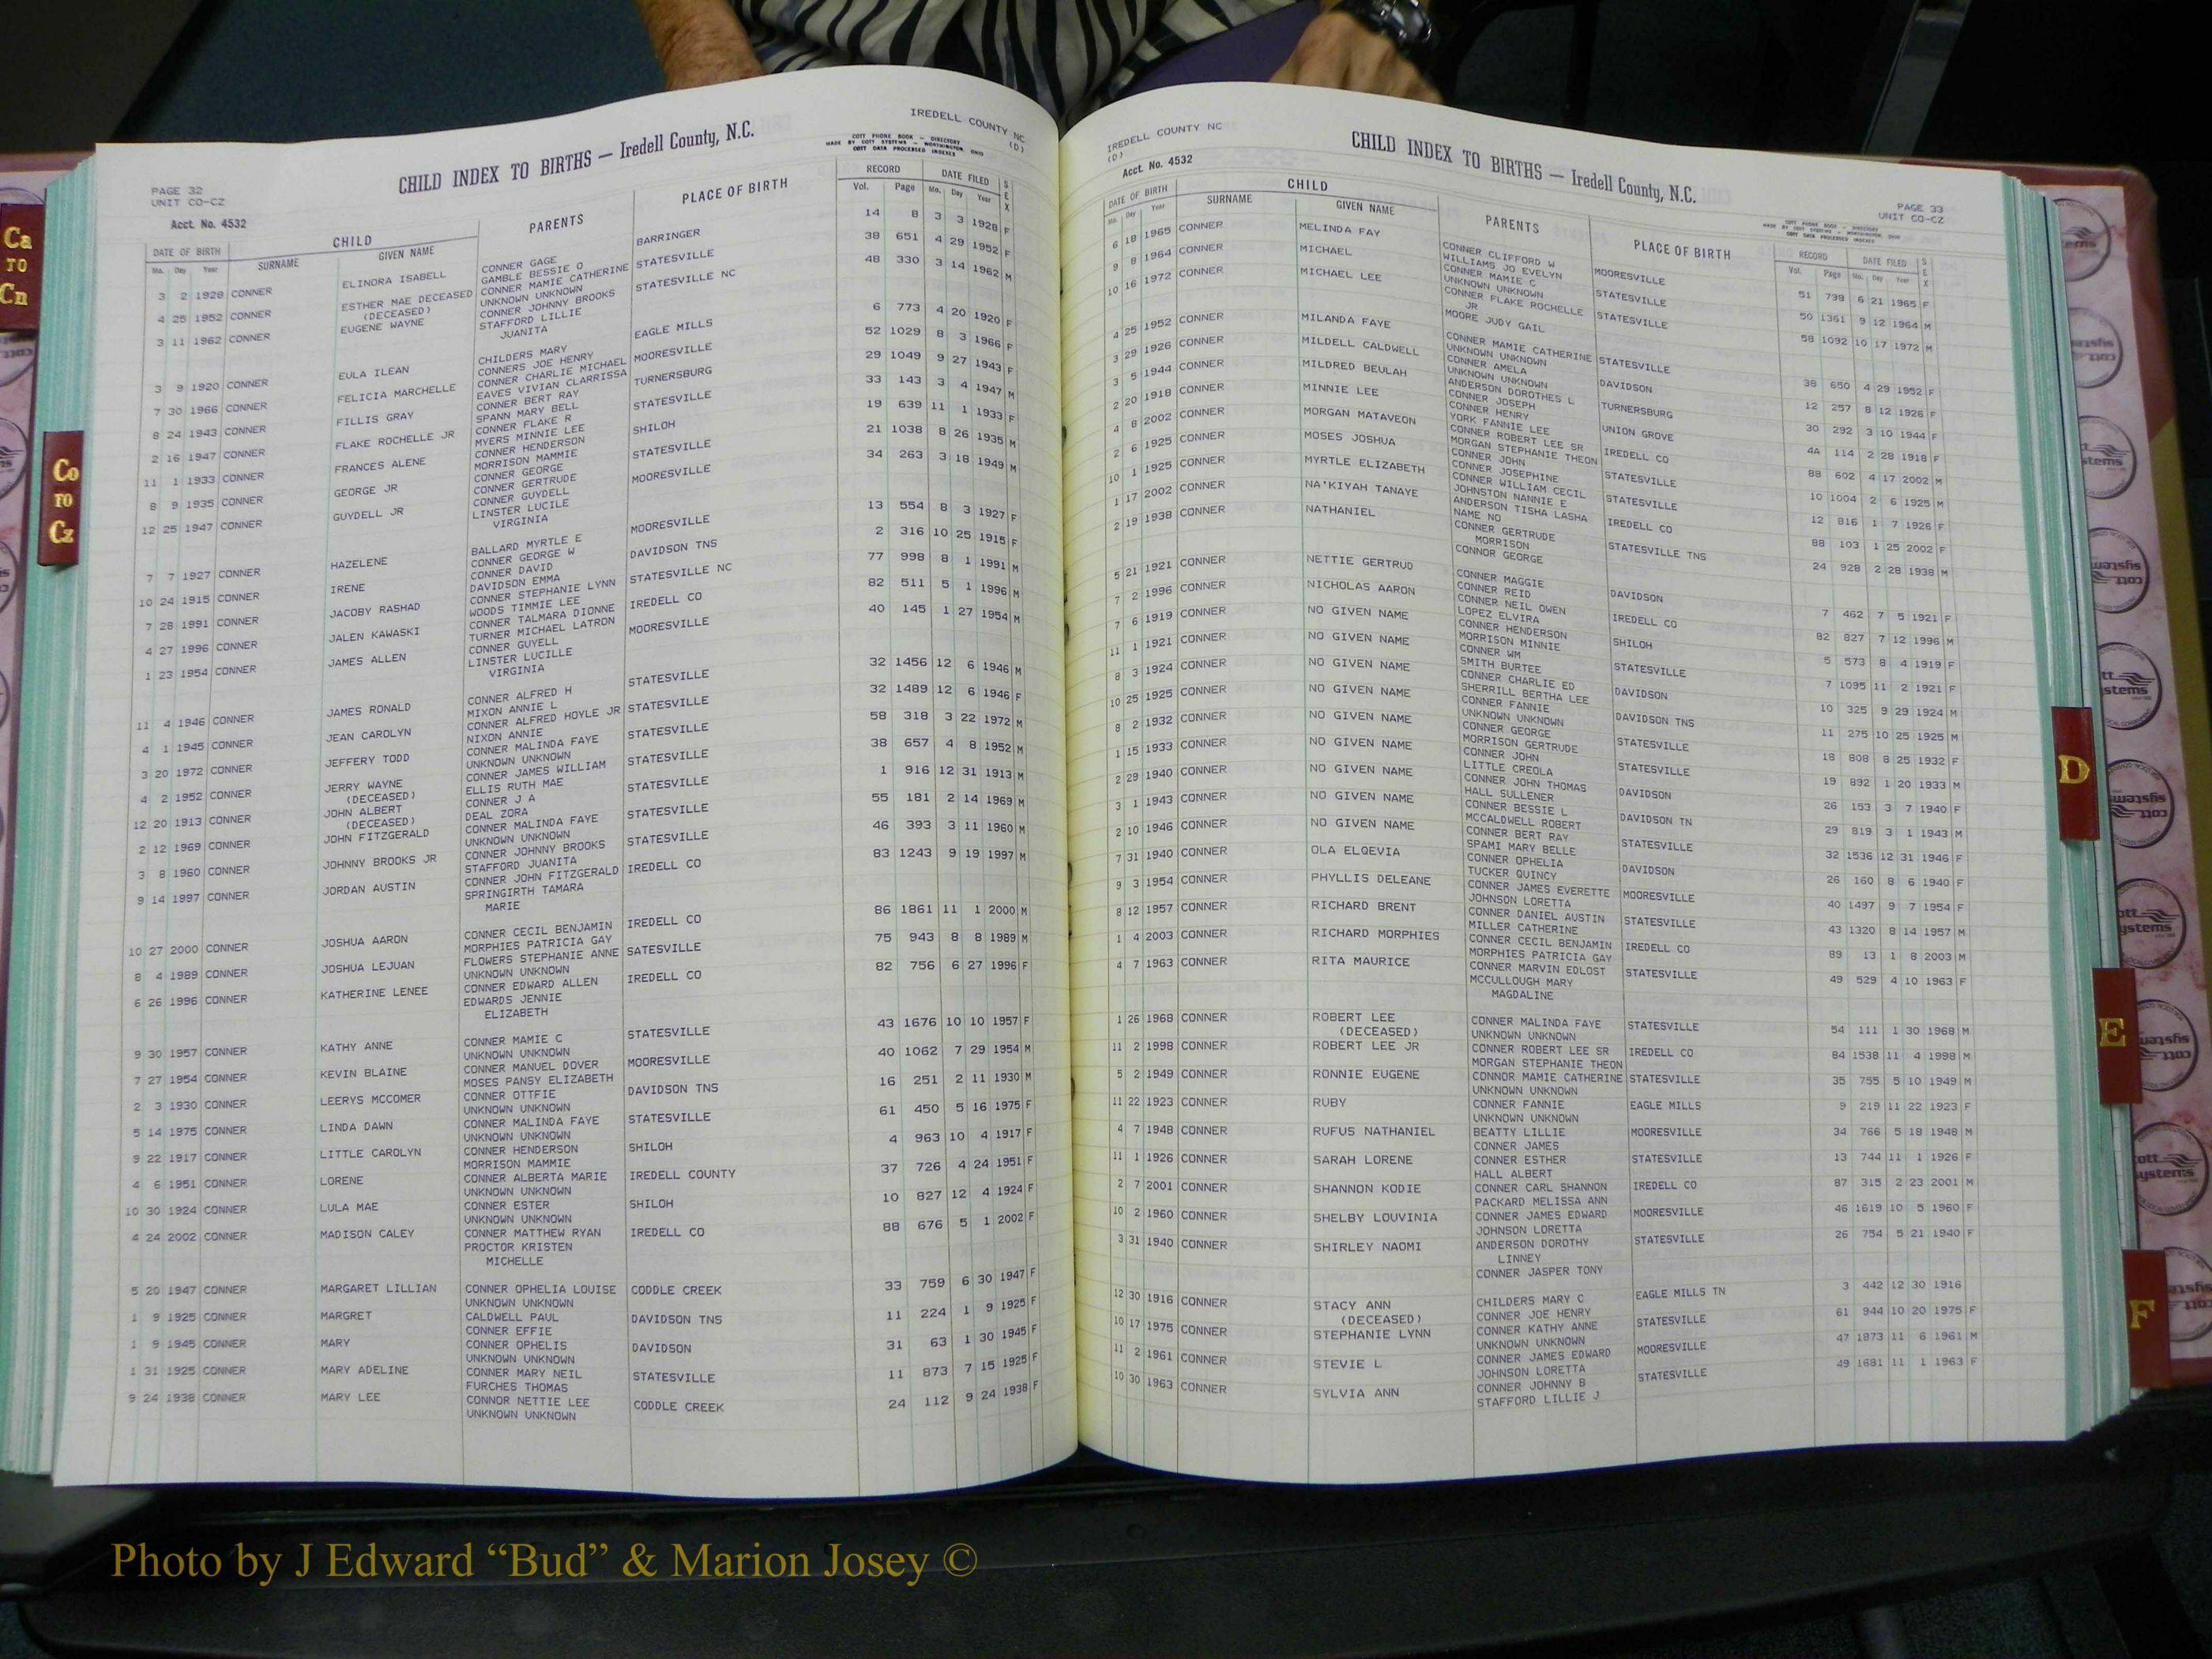 IREDELL COUNTY NC
(D)
CHILD INDEX TO BIRTHS — Iredell County, N.C.
COTT PHONE BOOK - DIRECTORY
MADE BY COTT SYSTEMS - WORTHINGTON, OHIO
COTT DATA PROCESSED INDEXES
PAGE 32
UNIT CO-CZ
Acct. No. 4532
DATE OF BIRTH CHILD PARENTS PLACE OF BIRTH RECORD DATE FILED SEX
Mo. Day Year SURNAME GIVEN NAME Vol. Page Mo. Day Year
3 2 1928 CONNER ELINORA ISABELL CONNER GAGE BARRINGER 14 8 3 3 1928 F
GAMBLE BESSIE O
4 25 1952 CONNER ESTHER MAE DECEASED CONNER MAMIE CATHERINE STATESVILLE 38 651 4 29 1952 F
(DECEASED) UNKNOWN UNKNOWN
3 11 1962 CONNER EUGENE WAYNE CONNER JOHNNY BROOKS STATESVILLE NC 48 330 3 14 1962 M
STAFFORD LILLIE
JUANITA
3 9 1920 CONNER EULA ILEAN CHILDERS MARY EAGLE MILLS 6 773 4 20 1920 F
CONNERS JOE HENRY
7 30 1966 CONNER FELICIA MARCHELLE CONNER CHARLIE MICHAEL MOORESVILLE 52 1029 8 3 1966 F
EAVES VIVIAN CLARRISSA
8 24 1943 CONNER FILLIS GRAY CONNER BERT RAY TURNERSBURG 29 1049 9 27 1943 F
SPANN MARY BELL
2 16 1947 CONNER FLAKE ROCHELLE JR CONNER FLAKE R STATESVILLE 33 143 3 4 1947 M
MYERS MINNIE LEE
11 1 1933 CONNER FRANCES ALENE CONNER HENDERSON SHILOH 19 639 11 1 1933 F
MORRISON MAMMIE
8 9 1935 CONNER GEORGE JR CONNER GEORGE STATESVILLE 21 1038 8 26 1935 M
CONNER GERTRUDE
12 25 1947 CONNER GUYDELL JR CONNER GUYDELL MOORESVILLE 34 263 3 18 1949 M
LINSTER LUCILE
VIRGINIA
7 7 1927 CONNER HAZELENE BALLARD MYRTLE E MOORESVILLE 13 554 8 3 1927 F
CONNER GEORGE W
10 24 1915 CONNER IRENE CONNER DAVID DAVIDSON TNS 2 316 10 25 1915 F
DAVIDSON EMMA
7 28 1991 CONNER JACOBY RASHAD CONNER STEPHANIE LYNN STATESVILLE NC 77 998 8 1 1991 M
WOODS TIMMIE LEE
4 27 1996 CONNER JALEN KAWASKI CONNER TALMARA DIONNE IREDELL CO 82 511 5 1 1996 M
TURNER MICHAEL LATRON
1 23 1954 CONNER JAMES ALLEN CONNER GUYELL MOORESVILLE 40 145 1 27 1954 M
LINSTER LUCILLE
VIRGINIA
11 4 1946 CONNER JAMES RONALD CONNER ALFRED H STATESVILLE 32 1456 12 6 1946 M
MIXON ANNIE L
4 1 1945 CONNER JEAN CAROLYN CONNER ALFRED HOYLE JR STATESVILLE 32 1489 12 6 1946 F
NIXON ANNIE
3 20 1972 CONNER JEFFERY TODD CONNER MALINDA FAYE STATESVILLE 58 318 3 22 1972 M
UNKNOWN UNKNOWN
4 2 1952 CONNER JERRY WAYNE CONNER JAMES WILLIAM STATESVILLE 38 657 4 8 1952 M
(DECEASED) ELLIS RUTH MAE
12 20 1913 CONNER JOHN ALBERT CONNER J A STATESVILLE 1 916 12 31 1913 M
(DECEASED) DEAL ZORA
2 12 1969 CONNER JOHN FITZGERALD CONNER MALINDA FAYE STATESVILLE 55 181 2 14 1969 M
UNKNOWN UNKNOWN
3 8 1960 CONNER JOHNNY BROOKS JR CONNER JOHNNY BROOKS STATESVILLE 46 393 3 11 1960 M
STAFFORD JUANITA
9 14 1997 CONNER JORDAN AUSTIN CONNER JOHN FITZGERALD IREDELL CO 83 1243 9 19 1997 M
SPRINGIRTH TAMARA
MARIE
10 27 2000 CONNER JOSHUA AARON CONNER CECIL BENJAMIN IREDELL CO 86 1861 11 1 2000 M
MORPHIES PATRICIA GAY
8 4 1989 CONNER JOSHUA LEJUAN FLOWERS STEPHANIE ANNE SATESVILLE 75 943 8 8 1989 M
UNKNOWN UNKNOWN
6 26 1996 CONNER KATHERINE LENEE CONNER EDWARD ALLEN IREDELL CO 82 756 6 27 1996 F
EDWARDS JENNIE
ELIZABETH
9 30 1957 CONNER KATHY ANNE CONNER MAMIE C STATESVILLE 43 1676 10 10 1957 F
UNKNOWN UNKNOWN
7 27 1954 CONNER KEVIN BLAINE CONNER MANUEL DOVER MOORESVILLE 40 1062 7 29 1954 M
MOSES PANSY ELIZABETH
2 3 1930 CONNER LEERYS MCCOMER CONNER OTTFIE DAVIDSON TNS 16 251 2 11 1930 M
UNKNOWN UNKNOWN
5 14 1975 CONNER LINDA DAWN CONNER MALINDA FAYE STATESVILLE 61 450 5 16 1975 F
UNKNOWN UNKNOWN
9 22 1917 CONNER LITTLE CAROLYN CONNER HENDERSON SHILOH 4 963 10 4 1917 F
MORRISON MAMMIE
4 6 1951 CONNER LORENE CONNER ALBERTA MARIE IREDELL COUNTY 37 726 4 24 1951 F
UNKNOWN UNKNOWN
10 30 1924 CONNER LULA MAE CONNER ESTER SHILOH 10 827 12 4 1924 F
UNKNOWN UNKNOWN
4 24 2002 CONNER MADISON CALEY CONNER MATTHEW RYAN IREDELL CO 88 676 5 1 2002 F
PROCTOR KRISTEN
MICHELLE
5 20 1947 CONNER MARGARET LILLIAN CONNER OPHELIA LOUISE CODDLE CREEK 33 759 6 30 1947 F
UNKNOWN UNKNOWN
1 9 1925 CONNER MARGRET CALDWELL PAUL DAVIDSON TNS 11 224 1 9 1925 F
CONNER EFFIE
1 9 1945 CONNER MARY CONNER OPHELIS DAVIDSON 31 63 1 30 1945 F
UNKNOWN UNKNOWN
1 31 1925 CONNER MARY ADELINE CONNER MARY NEIL STATESVILLE 11 873 7 15 1925 F
FURCHES THOMAS
9 24 1938 CONNER MARY LEE CONNOR NETTIE LEE CODDLE CREEK 24 112 9 24 1938 F
UNKNOWN UNKNOWN
IREDELL COUNTY NC
(D)
Acct. No. 4532
CHILD INDEX TO BIRTHS — Iredell County, N.C.
PAGE 33
UNIT CO-CZ
COTT PHONE BOOK - DIRECTORY
MADE BY COTT SYSTEMS - WORTHINGTON, OHIO
COTT DATA PROCESSED INDEXES
DATE OF BIRTH CHILD PARENTS PLACE OF BIRTH RECORD DATE FILED SEX
Mo. Day Year SURNAME GIVEN NAME Vol. Page Mo. Day Year
6 18 1965 CONNER MELINDA FAY CONNER CLIFFORD W MOORESVILLE 51 798 6 21 1965 F
WILLIAMS JO EVELYN
9 8 1964 CONNER MICHAEL CONNER MAMIE C STATESVILLE 50 1361 9 12 1964 M
UNKNOWN UNKNOWN
10 16 1972 CONNER MICHAEL LEE CONNER FLAKE ROCHELLE STATESVILLE 58 1092 10 17 1972 M
JR
MOORE JUDY GAIL
4 25 1952 CONNER MILANDA FAYE CONNER MAMIE CATHERINE STATESVILLE 38 650 4 29 1952 F
UNKNOWN UNKNOWN
3 29 1926 CONNER MILDELL CALDWELL CONNER AMELA DAVIDSON 12 257 8 12 1926 F
UNKNOWN UNKNOWN
3 5 1944 CONNER MILDRED BEULAH ANDERSON DOROTHES L TURNERSBURG 30 292 3 10 1944 F
CONNER JOSEPH
2 20 1918 CONNER MINNIE LEE CONNER HENRY UNION GROVE 4A 114 2 28 1918 F
YORK FANNIE LEE
4 8 2002 CONNER MORGAN MATAVEON CONNER ROBERT LEE SR IREDELL CO 88 602 4 17 2002 M
MORGAN STEPHANIE THEON
2 6 1925 CONNER MOSES JOSHUA CONNER JOHN STATESVILLE 10 1004 2 6 1925 M
CONNER JOSEPHINE
10 1 1925 CONNER MYRTLE ELIZABETH CONNER WILLIAM CECIL STATESVILLE 12 816 1 7 1926 F
JOHNSTON NANNIE E
1 17 2002 CONNER NA'KIYAH TANAYE ANDERSON TISHA LASHA IREDELL CO 88 103 1 25 2002 F
NAME NO
2 19 1938 CONNER NATHANIEL CONNER GERTRUDE STATESVILLE TNS 24 928 2 28 1938 M
MORRISON
CONNOR GEORGE
5 21 1921 CONNER NETTIE GERTRUD CONNER MAGGIE DAVIDSON 7 462 7 5 1921 F
CONNER REID
7 2 1996 CONNER NICHOLAS AARON CONNER NEIL OWEN IREDELL CO 82 827 7 12 1996 M
LOPEZ ELVIRA
7 6 1919 CONNER NO GIVEN NAME CONNER HENDERSON SHILOH 5 573 8 4 1919 F
MORRISON MINNIE
11 1 1921 CONNER NO GIVEN NAME CONNER WM STATESVILLE 7 1095 11 2 1921 F
SMITH BURTEE
8 3 1924 CONNER NO GIVEN NAME CONNER CHARLIE ED DAVIDSON 10 325 9 29 1924 M
SHERRILL BERTHA LEE
10 25 1925 CONNER NO GIVEN NAME CONNER FANNIE DAVIDSON TNS 11 275 10 25 1925 M
UNKNOWN UNKNOWN
8 2 1932 CONNER NO GIVEN NAME CONNER GEORGE STATESVILLE 18 808 8 25 1932 F
MORRISON GERTRUDE
1 15 1933 CONNER NO GIVEN NAME CONNER JOHN STATESVILLE 19 892 1 20 1933 M
LITTLE CREOLA
2 29 1940 CONNER NO GIVEN NAME CONNER JOHN THOMAS DAVIDSON 26 153 3 7 1940 F
HALL SULLENER
3 1 1943 CONNER NO GIVEN NAME CONNER BESSIE L DAVIDSON TN 29 819 3 1 1943 M
MCCALDWELL ROBERT
2 10 1946 CONNER NO GIVEN NAME CONNER BERT RAY STATESVILLE 32 1536 12 31 1946 F
SPAMI MARY BELLE
7 31 1940 CONNER OLA ELQEVIA CONNER OPHELIA DAVIDSON 26 160 8 6 1940 F
TUCKER QUINCY
9 3 1954 CONNER PHYLLIS DELEANE CONNER JAMES EVERETTE MOORESVILLE 40 1497 9 7 1954 F
JOHNSON LORETTA
8 12 1957 CONNER RICHARD BRENT CONNER DANIEL AUSTIN STATESVILLE 43 1320 8 14 1957 M
MILLER CATHERINE
1 4 2003 CONNER RICHARD MORPHIES CONNER CECIL BENJAMIN IREDELL CO 89 13 1 8 2003 M
MORPHIES PATRICIA GAY
4 7 1963 CONNER RITA MAURICE CONNER MARVIN EDLOST STATESVILLE 49 529 4 10 1963 F
MCCULLOUGH MARY
MAGDALINE
1 26 1968 CONNER ROBERT LEE CONNER MALINDA FAYE STATESVILLE 54 111 1 30 1968 M
(DECEASED) UNKNOWN UNKNOWN
11 2 1998 CONNER ROBERT LEE JR CONNER ROBERT LEE SR IREDELL CO 84 1538 11 4 1998 M
MORGAN STEPHANIE THEON
5 2 1949 CONNER RONNIE EUGENE CONNOR MAMIE CATHERINE STATESVILLE 35 755 5 10 1949 M
UNKNOWN UNKNOWN
11 22 1923 CONNER RUBY CONNER FANNIE EAGLE MILLS 9 219 11 22 1923 F
UNKNOWN UNKNOWN
4 7 1948 CONNER RUFUS NATHANIEL BEATTY LILLIE MOORESVILLE 34 766 5 18 1948 M
CONNER JAMES
11 1 1926 CONNER SARAH LORENE CONNER ESTHER STATESVILLE 13 744 11 1 1926 F
HALL ALBERT
2 7 2001 CONNER SHANNON KODIE CONNER CARL SHANNON IREDELL CO 87 315 2 23 2001 M
PACKARD MELISSA ANN
10 2 1960 CONNER SHELBY LOUVINIA CONNER JAMES EDWARD MOORESVILLE 46 1619 10 5 1960 F
JOHNSON LORETTA
3 31 1940 CONNER SHIRLEY NAOMI ANDERSON DOROTHY STATESVILLE 26 754 5 21 1940 F
LINNEY
CONNER JASPER TONY
12 30 1916 CONNER STACY ANN CHILDERS MARY C EAGLE MILLS TN 3 442 12 30 1916
(DECEASED) CONNER JOE HENRY
10 17 1975 CONNER STEPHANIE LYNN CONNER KATHY ANNE STATESVILLE 61 944 10 20 1975 F
UNKNOWN UNKNOWN
11 2 1961 CONNER STEVIE L CONNER JAMES EDWARD MOORESVILLE 47 1873 11 6 1961 M
JOHNSON LORETTA
10 30 1963 CONNER SYLVIA ANN CONNER JOHNNY B STATESVILLE 49 1681 11 1 1963 F
STAFFORD LILLIE J
Ca
TO
Cn
Co
TO
Cz
D
E
F
Photo by J Edward “Bud” & Marion Josey ©